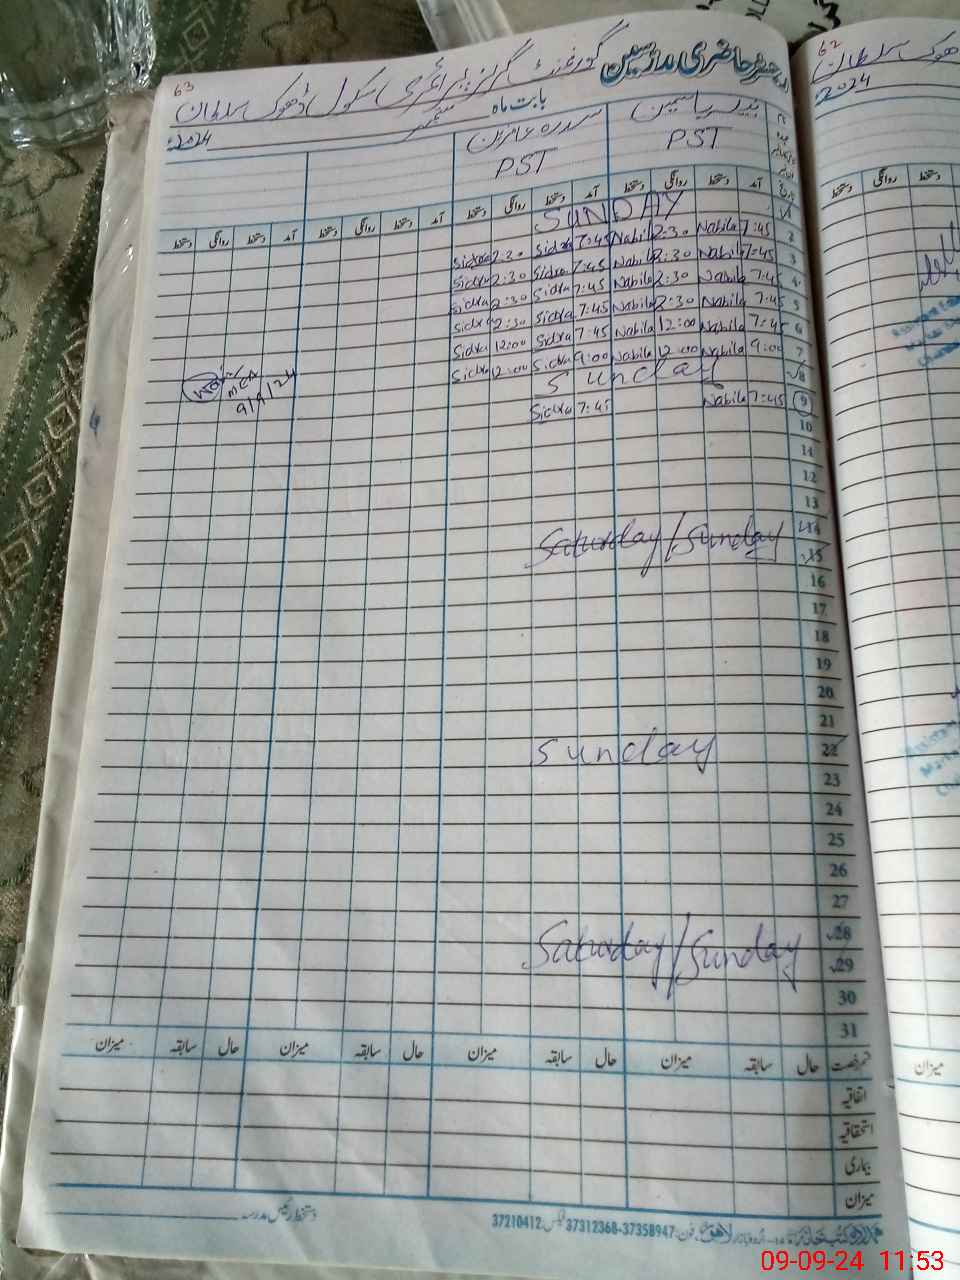 63
رجسٹر حاضری مدرسین گورنمنٹ گرلز پرائمری سکول ڈھوک سلطان
بابت ماہ ستمبر 2024ء
نبیلہ یاسمین سدرہ عامرین
PST PST
آمد دستخط روانگی دستخط آمد دستخط روانگی دستخط آمد دستخط روانگی دستخط آمد دستخط روانگی دستخط
1 SUNDAY
2 7:45 Nabila 2:30 Nabila 7:45 Sidra 2:30 Sidra
3 7:45 Nabila 2:30 Nabila 7:45 Sidra 2:30 Sidra
4 7:45 Nabila 2:30 Nabila 7:45 Sidra 2:30 Sidra
5 7:45 Nabila 2:30 Nabila 7:45 Sidra 2:30 Sidra
6 7:45 Nabila 12:00 Nabila 7:45 Sidra 12:00 Sidra
7 9:00 Nabila 12:00 Nabila 9:00 Sidra 12:00 Sidra
8 Sunday
MEA
9/9/24
9 7:45 Nabila 7:45 Sidra
10
11
12
13
14
Saturday/Sunday
15
16
17
18
19
20
21
22 Sunday
23
24
25
26
27
28
Saturday/Sunday
29
30
31
قسم رخصت حال سابقہ میزان حال سابقہ میزان حال سابقہ میزان حال سابقہ میزان
اتفاقیہ
استحقاقیہ
بیماری
میزان
دستخط رئیس مدرسہ
اردو بازار لاہور فون: 37358947-37312368 فیکس: 37210412
62
ڈھوک سلطان
2024ء
روانگی دستخط
دستخط
میزان
09-09-24 11:53